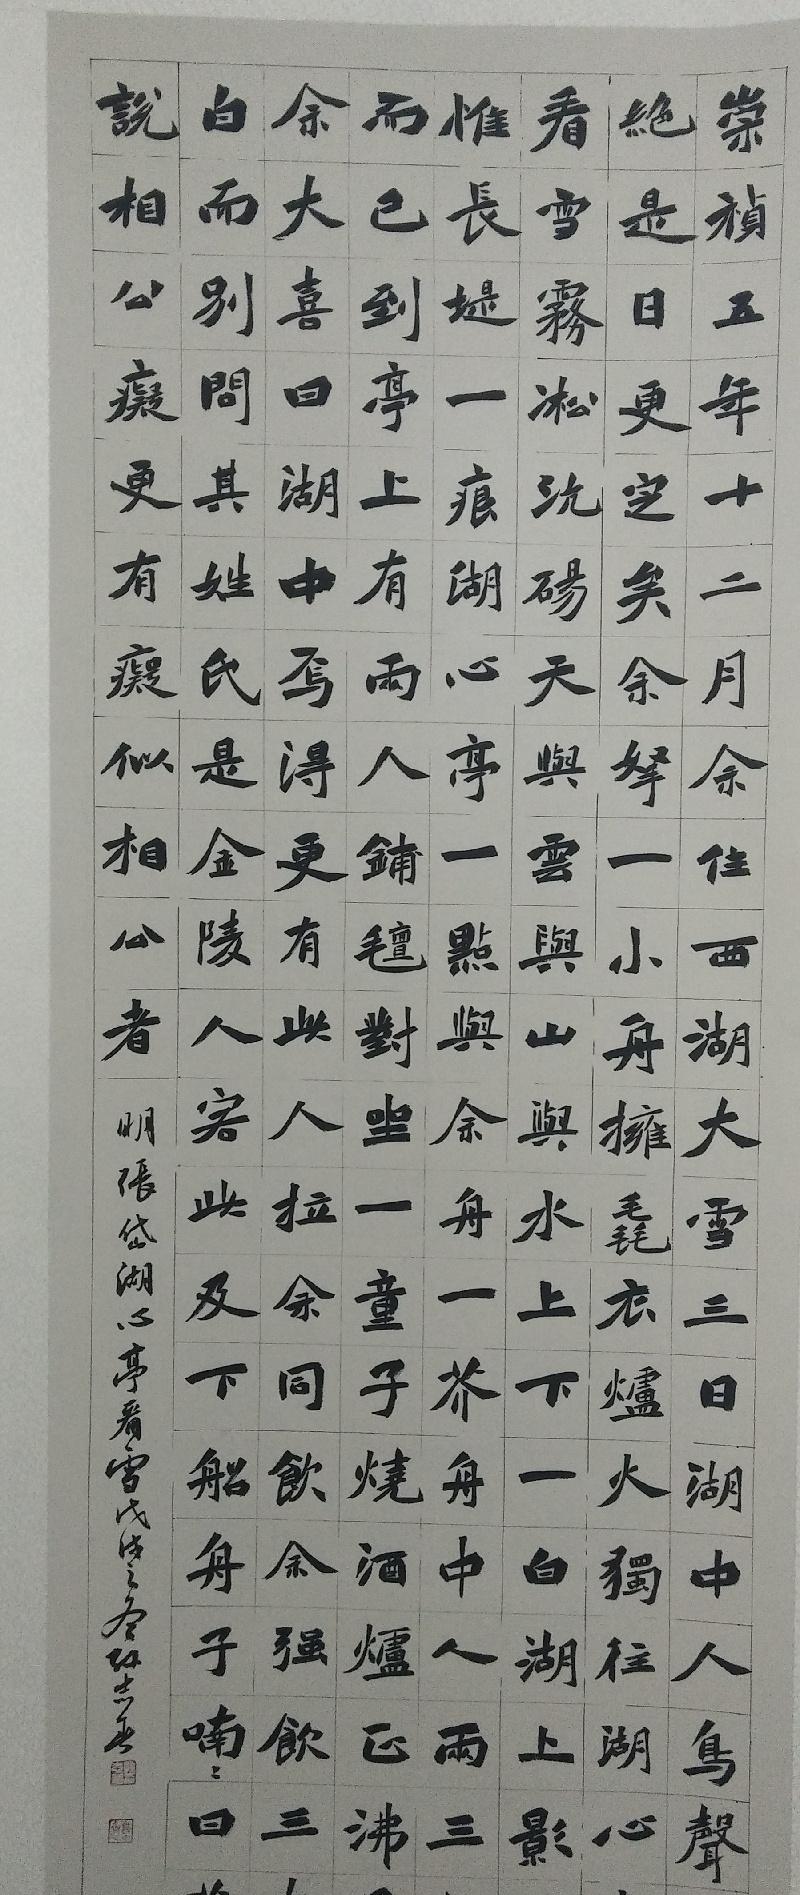 崇禎五年十二月余住西湖大雪三日湖中人鳥聲
絶是日更定矣余拏一小舟擁毳衣爐火獨往湖心
看雪霧凇沆碭天與雲與山與水上下一白湖上影
惟長堤一痕湖心亭一點與余舟一芥舟中人兩三
而已到亭上有兩人鋪氈對坐一童子燒酒爐正沸
余大喜曰湖中焉得更有此人拉余同飲余强飲三
白而別問其姓氏是金陵人客此及下船舟子喃〻曰
說相公癡更有癡似相公者
明張岱湖心亭看雪戊戌之冬